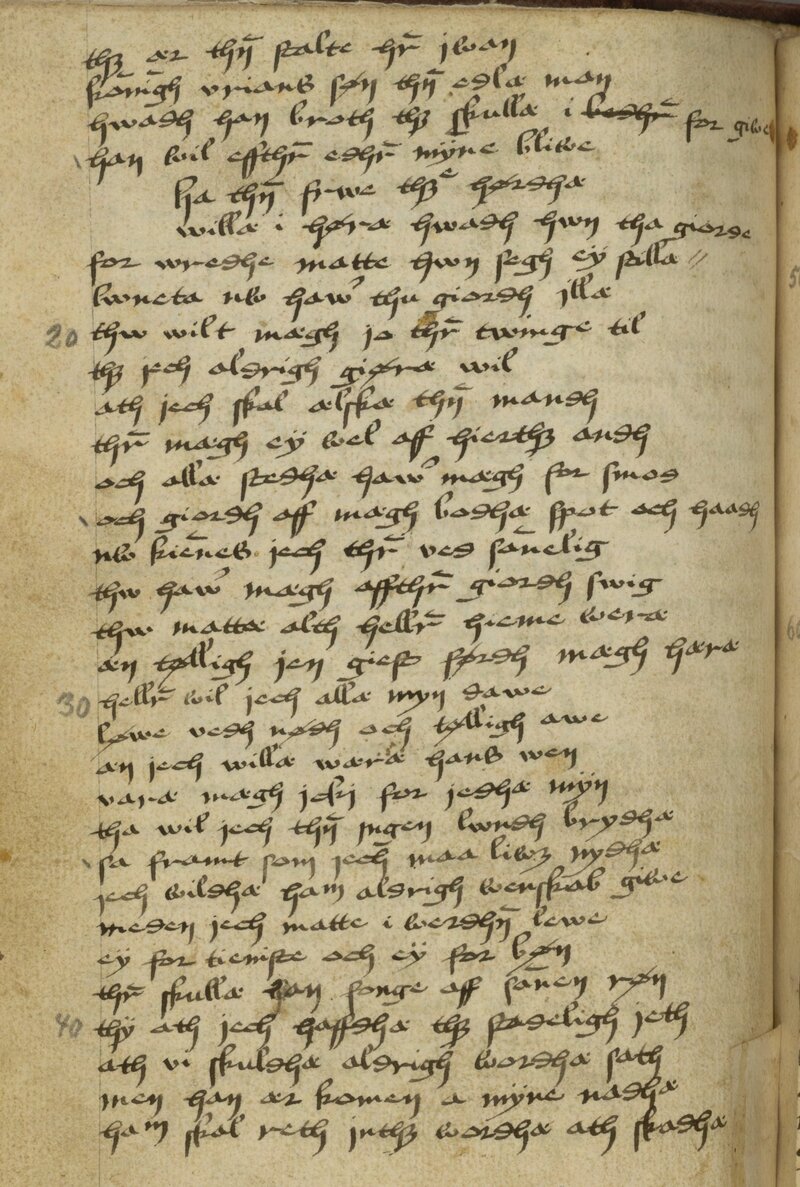 thꝫ ær thn̄ stalte hr̄ jwan
konnīgh vrians søn thn̄ edlæ man
hwadh han broth thꝫ skullæ i bedhr̄ for giwe
han wil effthr̄ edhr̄ myne bliwe
ha thn̄ frwe thꝫ hørdhæ
willæ i høræ hwadh hwn tha giorde
for wredhe matte hwn segh ey stilla
lwneta nw haw' thu giordh jllæ
20 thw wilt mægh jo thr̄ twinge til
thꝫ jech aldrigh giøræ wil
ath jech skal ælskæ thn̄ mandh
thr̄ mægh ey wel aff hierthꝫ andh
och allæ stedhæ haw' mægh for smod
och giordh aff mægh bodhæ spot och haadh
nw kien̄es jech thr̄ ved san̄elig
thw haw' mægh affthr̄ giordh swig
thw mattæ alth hellr̄ hieme weræ
æn tølligh jen giest førdh mægh hæræ
30 hellr̄ wil jech allæ myn dawe
løwe vedh nødh och tølligh awe
æn jech willæ wæræ hans wen
varæ mægh jckj for jedhæ myn
tha wil jech thn̄ ingen lwndh brydhæ
sa framt som jech maa liwꝫ nydhæ
jech wildhæ ham aldrigh wenskab giwe
meden jech matte i werdhn̄ lewe
ey for tieniste och ey for bøn
thr̄ skullæ han fonge aff san̄en røn
40 thy ath jech haffdhæ thꝫ stadeligh jeth
ath vi skuldhæ aldrigh wordhæ sath
men han ær komen a myne nadhæ
ham skal reth inthꝫ wordhæ ath skadhæ